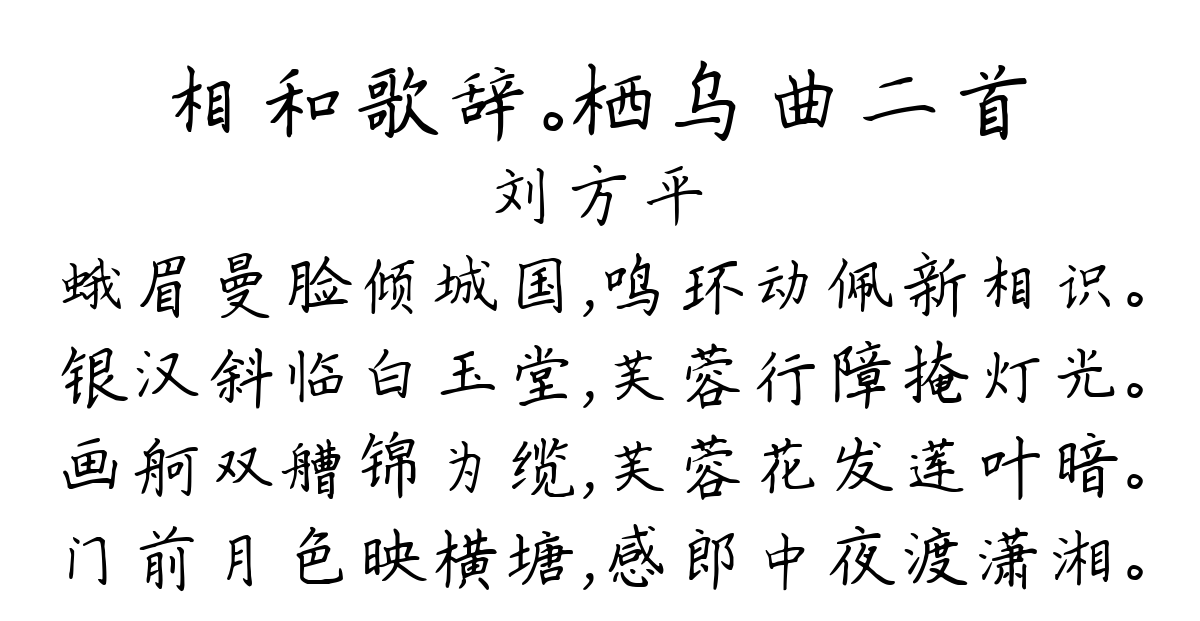 相和歌辞。栖乌曲二首
刘方平
蛾眉曼脸倾城国,鸣环动佩新相识。
银汉斜临白玉堂,芙蓉行障掩灯光。
画舸双艚锦为缆,芙蓉花发莲叶暗。
门前月色映横塘,感郎中夜渡潇湘。